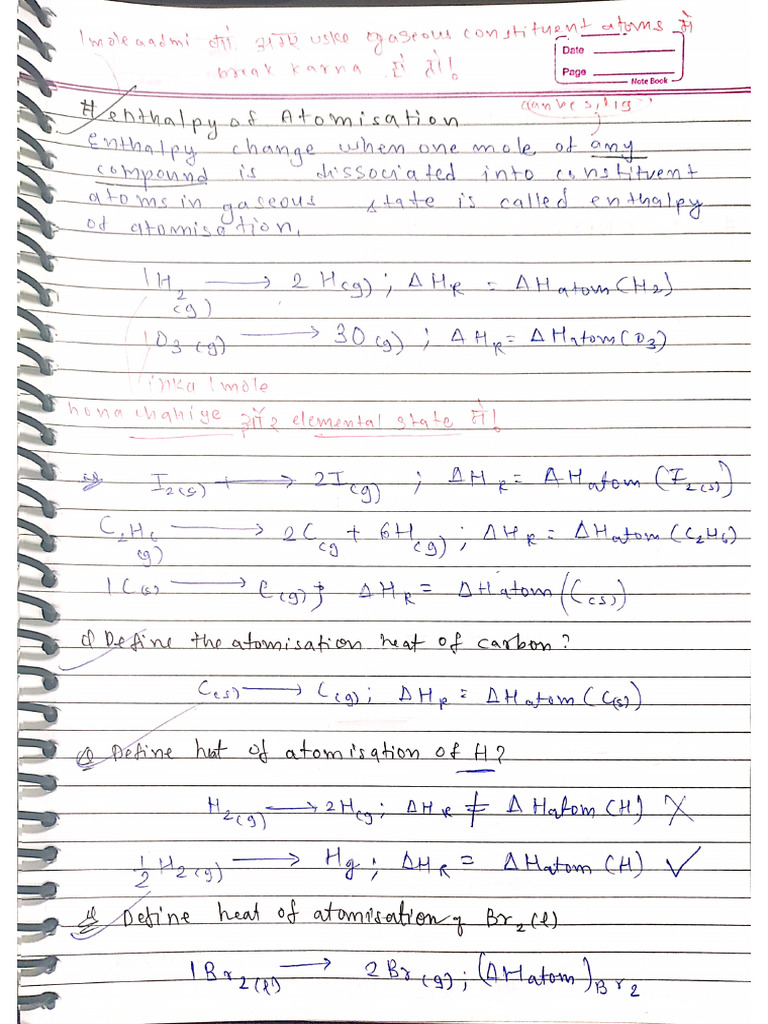 1 mole aadmi को अगर uske gaseous constituent atoms में
break karna है तो!
Date
Page
Note Book
# enthalpy of Atomisation
can be s, l, g
Enthalpy change when one mole of any
compound is dissociated into constituent
atoms in gaseous state is called enthalpy
of atomisation.
1H₂(g) ⟶ 2H(g); ΔH_R = ΔHatom(H₂)
1O₃(g) ⟶ 3O(g); ΔH_R = ΔHatom(O₃)
inka 1 mole
hona chahiye और elemental state में!
I₂(s) ⟶ 2I(g); ΔH_R = ΔHatom(I₂(s))
C₂H₆(g) ⟶ 2C(g + 6H(g); ΔH_R = ΔHatom(C₂H₆)
1C(s) ⟶ C(g); ΔH_R = ΔHatom(C(s))
Q Define the atomisation heat of carbon?
C(s) ⟶ C(g); ΔH_R = ΔHatom(C(s))
Q Define heat of atomisation of H?
H₂(g) ⟶ 2H(g; ΔH_R ≠ ΔHatom(H) ✗
½H₂(g) ⟶ Hg; ΔH_R = ΔHatom(H) ✓
Define heat of atomisation of Br₂(l)
1Br₂(l) ⟶ 2Br(g); (ΔHatom)Br₂